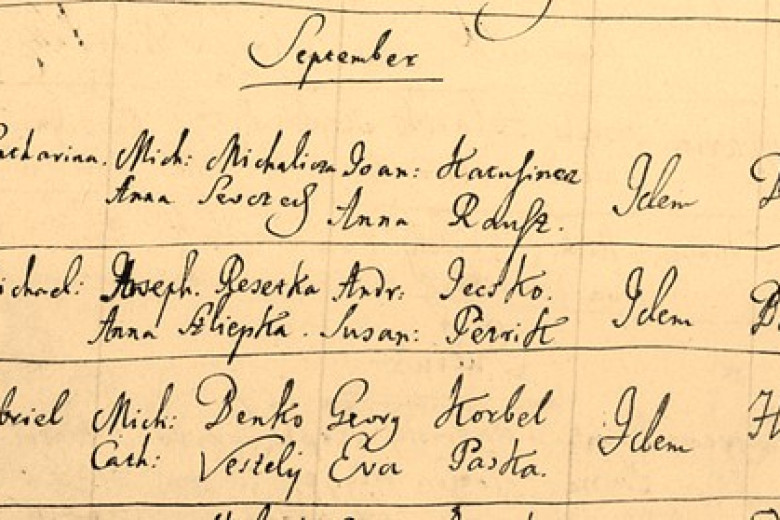 September
Catharina. Mich: Michalicza Joan: Katusincz Idem
Anna Anna Rausz.
ichael: Joseph. Beserka Andr: Jecsko. Idem B
Anna Szliepka. Susan: Petrik
briel Mich: Benko Georg Korbel Idem H
Cath: Veszelij Eva Paska.